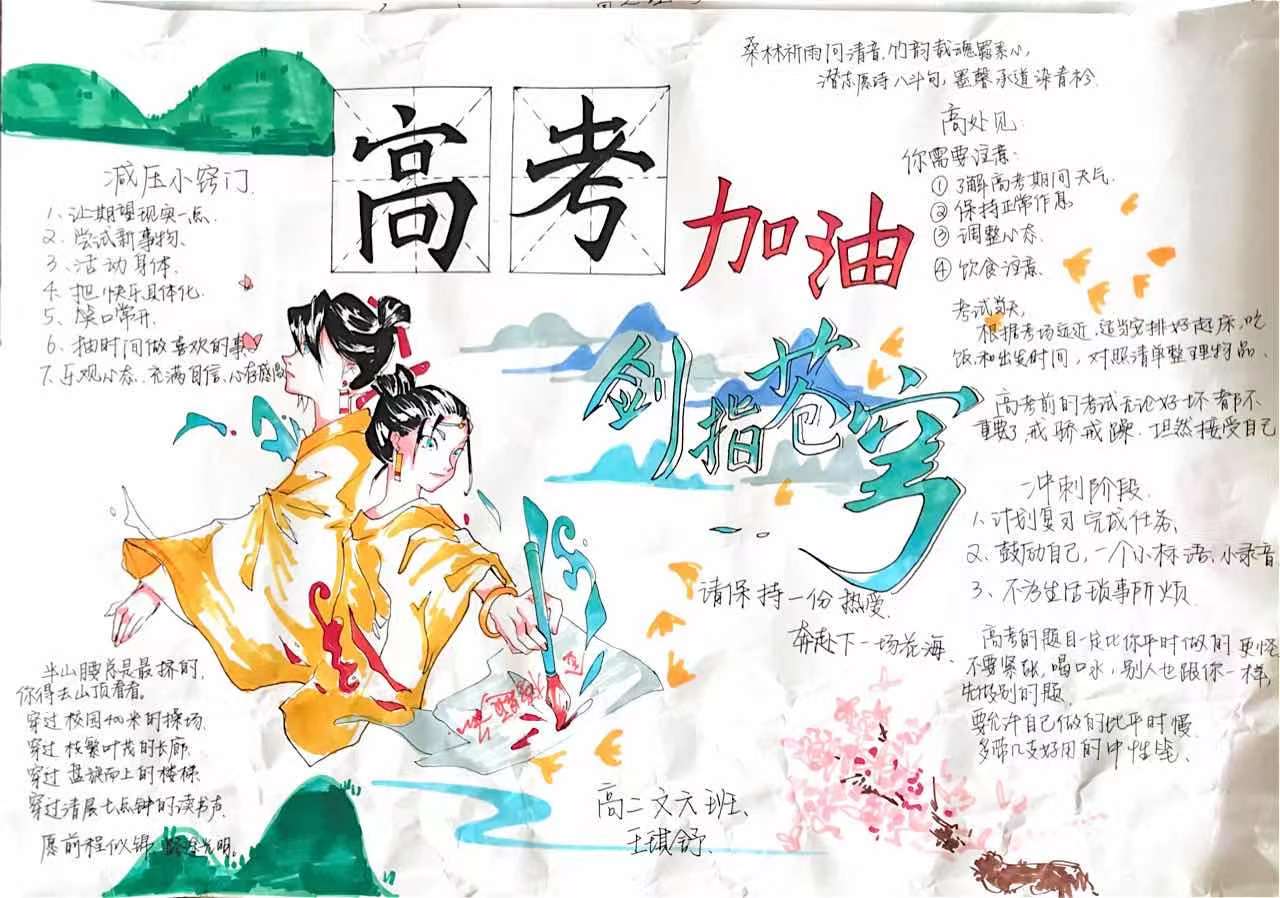 桑林祈雨问清音,竹韵载魂
潜志愿诗八斗句,墨馨承道染青衫.
高考
加油
剑指苍穹
减压小窍门.
1、让期望现实一点.
2、尝试新事物.
3、活动身体.
4、把快乐具体化.
5、笑口常开.
6、抽时间做喜欢的事
7、乐观心态、充满自信、心存感
高处见:
你需要注意:
① 了解高考期间天气.
② 保持正常作息
③ 调整心态.
④ 饮食注意.
考试当天,
根据考场远近,适当安排好起床,吃
饭和出发时间,对照清单整理物品.
高考前的考试无论好坏都不
重要了 戒骄戒躁.坦然接受自己
冲刺阶段.
1、计划复习 完成任务、
2、鼓励自己,一个小标语、小录音
3、不为生活琐事所烦.
高考的题目一定比你平时做的更怪
不要紧张,喝口水,别人也跟你一样,
先做别的题.
要允许自己做的比平时慢
多带几支好用的中性笔、
请保持一份热爱.
奔赴下一场花海.
半山腰总是最挤的,
你得去山顶看看。
穿过校园400米的操场.
穿过枝繁叶茂的长廊
穿过盘旋而上的楼梯
穿过清晨七点钟的读书声.
愿前程似锦 光明.
高二文六班、
王琪舒.